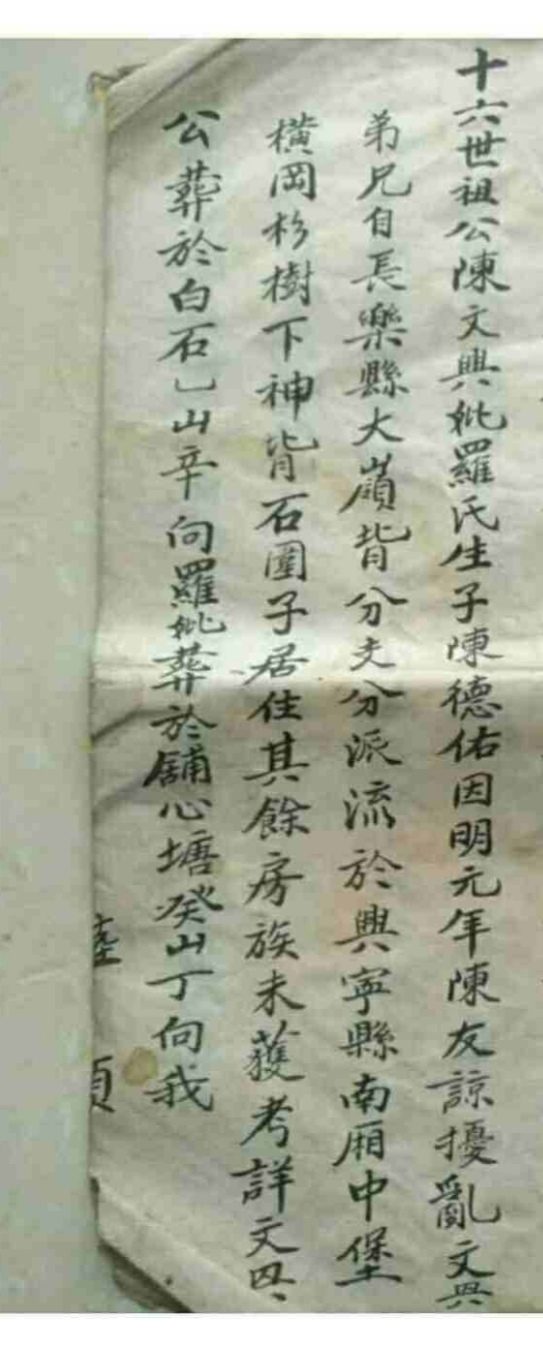 十六世祖公陳文興妣羅氏生子陳德佑因明元年陳友諒擾亂文興
弟兄自長樂縣大嶺背分支分派流於興寧縣南厢中堡
橫岡杉樹下神背石圍子居住其餘房族未獲考詳文興
公葬於白石乚山辛向羅妣葬於舖心塘癸山丁向我